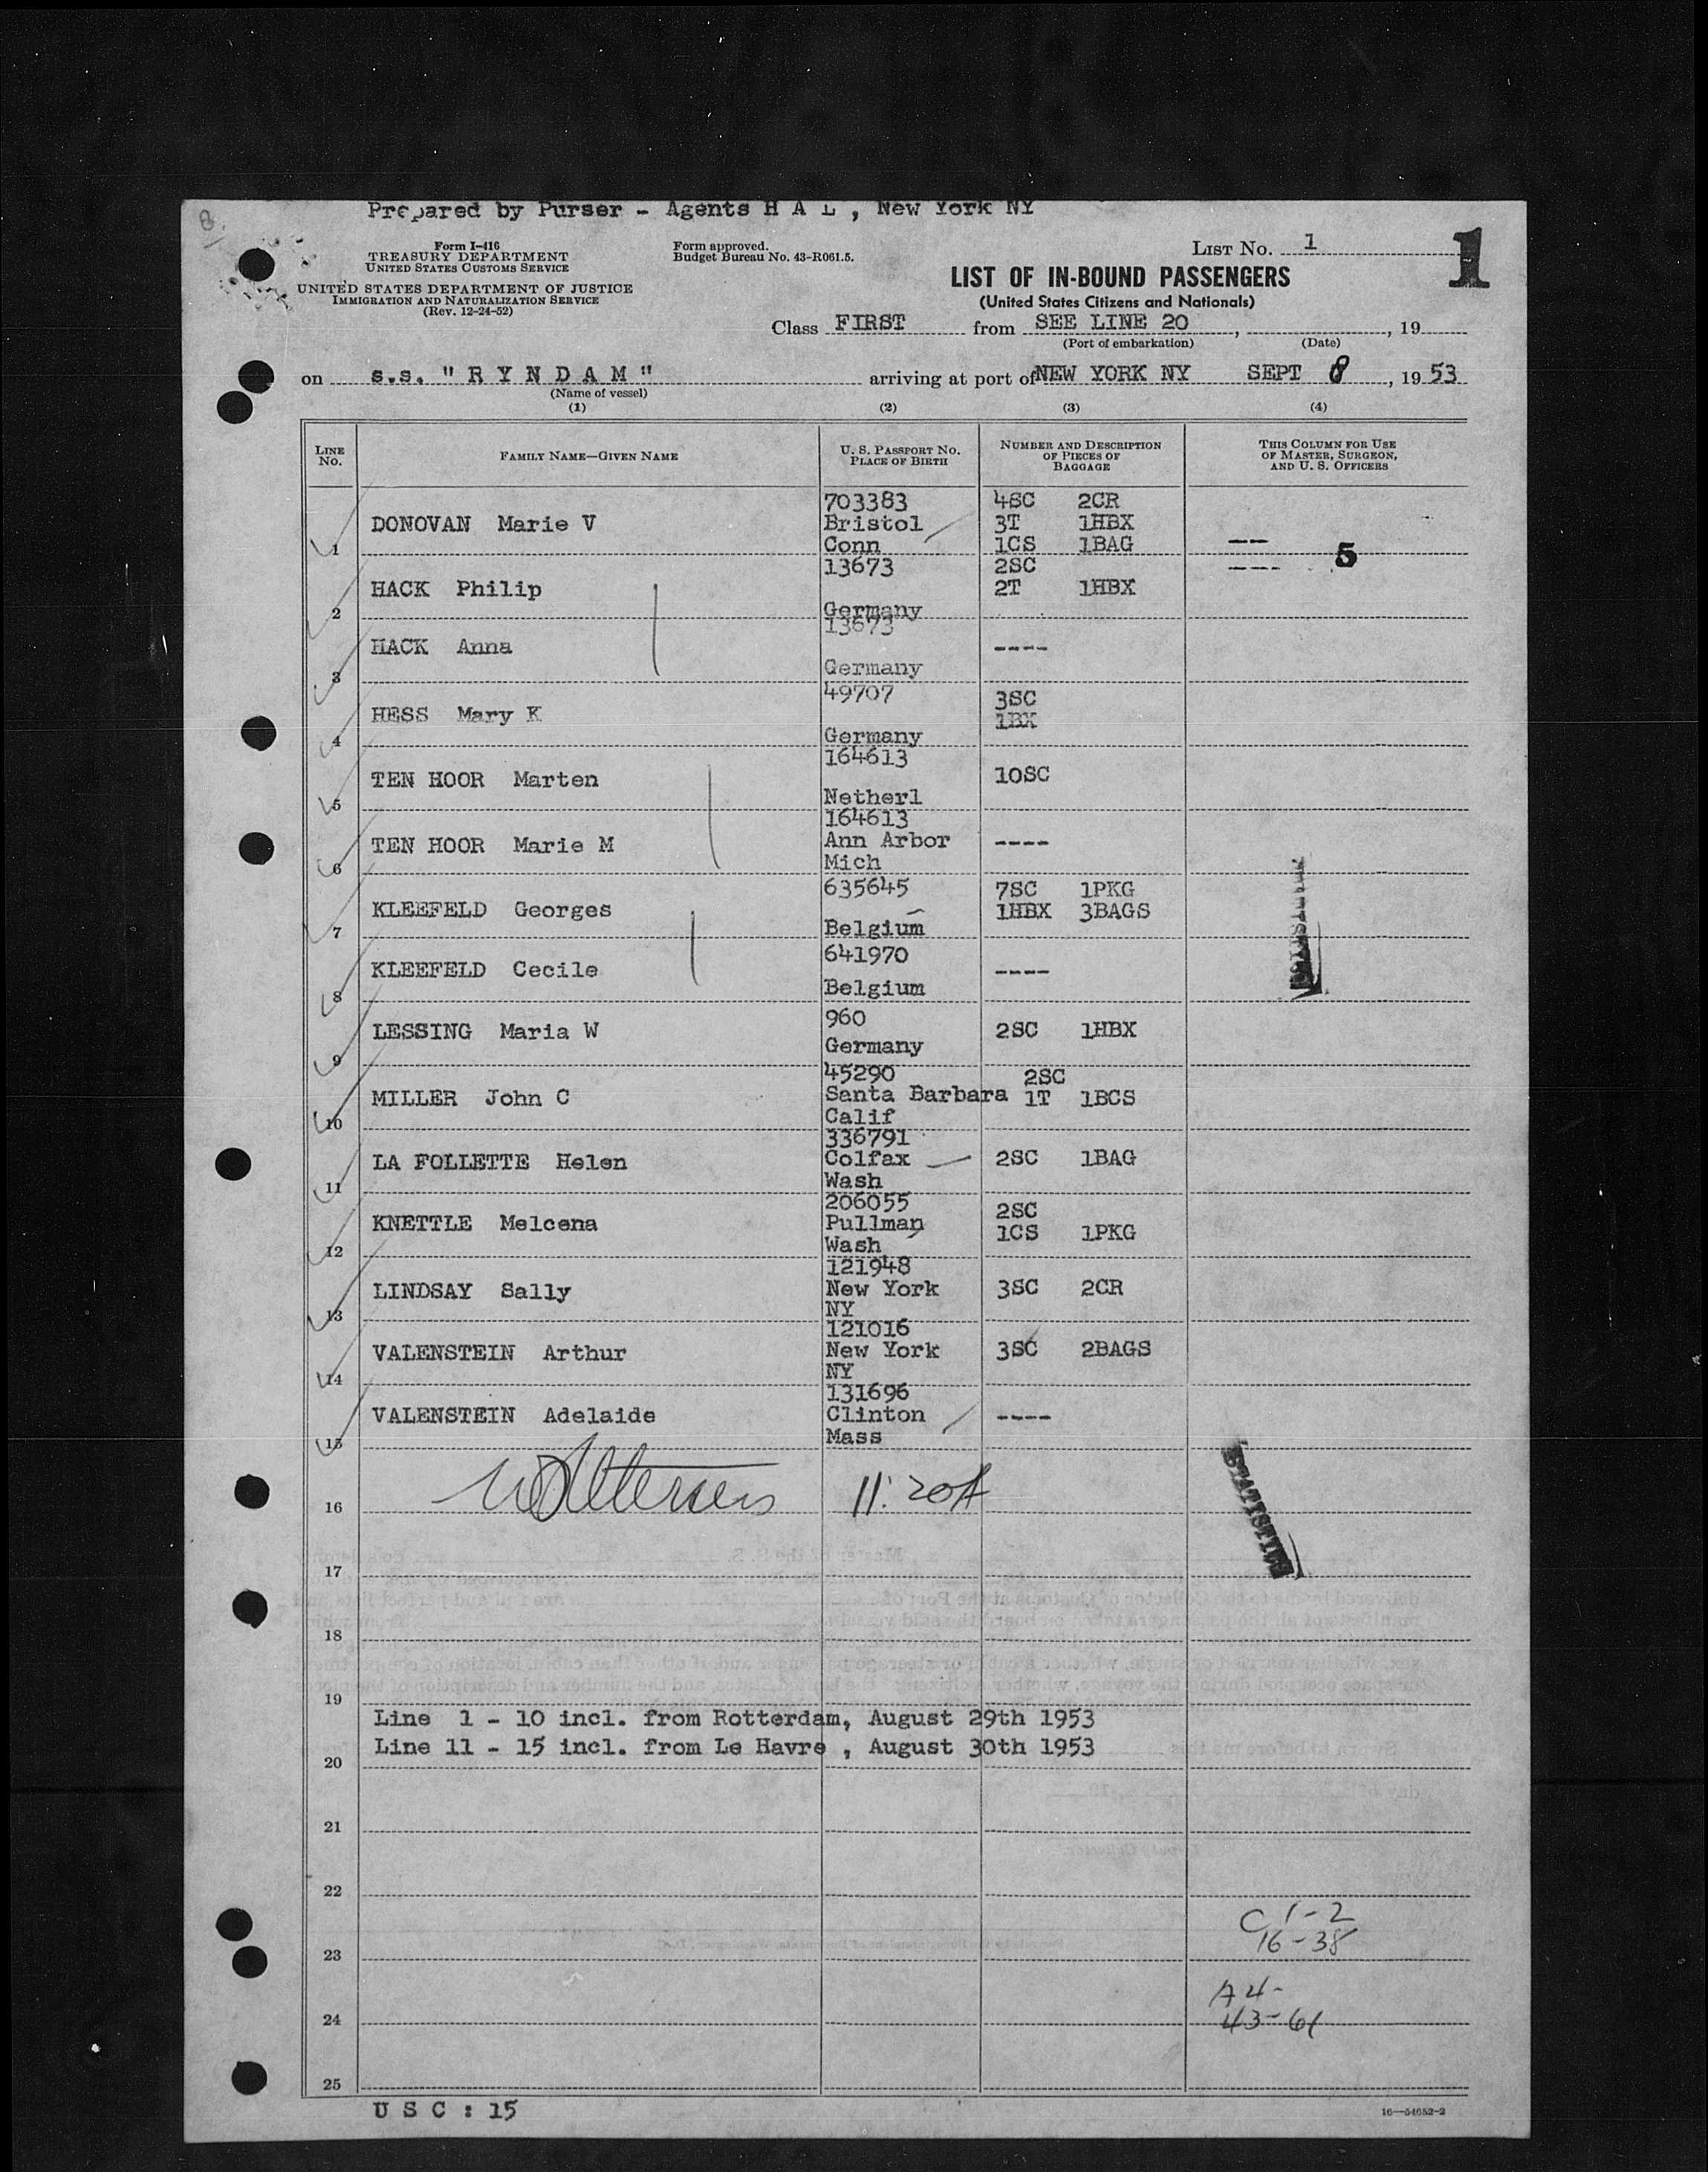 Prepared by Purser - Agents H A L , New York NY
Form I-416
TREASURY DEPARTMENT
UNITED STATES CUSTOMS SERVICE
UNITED STATES DEPARTMENT OF JUSTICE
IMMIGRATION AND NATURALIZATION SERVICE
(Rev. 12-24-52)
Form approved.
Budget Bureau No. 43-R061.5.
LIST NO. 1
1
LIST OF IN-BOUND PASSENGERS
(United States Citizens and Nationals)
Class FIRST from SEE LINE 20 , , 19
(Port of embarkation) (Date)
on s.s. "R Y N D A M" arriving at port of NEW YORK NY SEPT 8 , 1953
(Name of vessel)
(1) (2) (3) (4)
LINE No.
FAMILY NAME—GIVEN NAME
U. S. PASSPORT NO.
PLACE OF BIRTH
NUMBER AND DESCRIPTION
OF PIECES OF
BAGGAGE
THIS COLUMN FOR USE
OF MASTER, SURGEON,
AND U. S. OFFICERS
703383 4SC 2CR
DONOVAN Marie V Bristol 3T 1HBX
1 Conn 1CS 1BAG -- 5
13673 2SC ----
HACK Philip 2T 1HBX
2 Germany
13673
HACK Anna ----
3 Germany
49707 3SC
HESS Mary K 1BX
4 Germany
164613
TEN HOOR Marten 10SC
5 Netherl
164613
TEN HOOR Marie M Ann Arbor ----
6 Mich
635645 7SC 1PKG
KLEEFELD Georges 1HBX 3BAGS
7 Belgium
641970
KLEEFELD Cecile ----
8 Belgium
960
LESSING Maria W 2SC 1HBX
9 Germany
45290 2SC
MILLER John C Santa Barbara 1T 1BCS
10 Calif
336791
LA FOLLETTE Helen Colfax 2SC 1BAG
11 Wash
206055 2SC
KNETTLE Melcena Pullman 1CS 1PKG
12 Wash
121948
LINDSAY Sally New York 3SC 2CR
13 NY
121016
VALENSTEIN Arthur New York 3SC 2BAGS
14 NY
131696
VALENSTEIN Adelaide Clinton ----
15 Mass
16 11:20A
STATISTICS
17
18
19
Line 1 - 10 incl. from Rotterdam, August 29th 1953
Line 11 - 15 incl. from Le Havre , August 30th 1953
20
21
22
C 1-2
16-38
23
A 4-
43-61
24
25
U S C : 15
16—54652-2